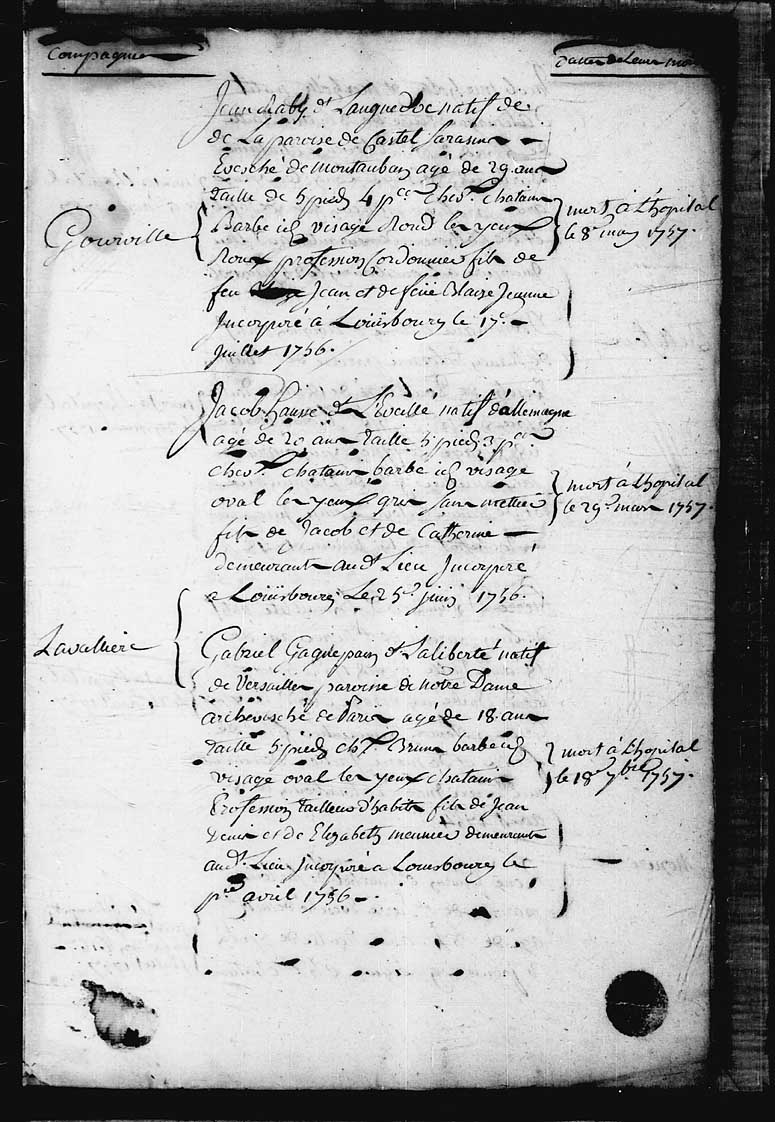 Compagnies
Dattes de Leurs mort
Jean chably dt Languedoc natif de
de La paroise de Castel Sarasin
Evesché de Montauban agé de 29 ans
taille de 5 pieds 4 pces chev. chatain
Gourville
Barbe id visage Rond les yeux
mort à L'hopital
le 8 may 1757.
Roux profession Cordonnier fils de
feu Jean et de feüe Blaize Jeanne
Incorporé à Loüisbourg le 17e
Juillet 1756.
Jacob hausse dt L'Eveillé natif d'allemagne
agé de 20 ans taille 5 pieds 3 pces
chev. chatain barbe id visage
oval les yeux gris sans mettier
mort à L'hopital
le 29 mars 1757.
fils de Jacob et de Catherine
demeurants audt Lieu Incorporé
a Loüisbourg Le 25 juin 1756.
Lavalliere
Gabriel Gagnepain dt Laliberté natif
de Versailles paroise de notre Dame
archevesché de Paris agé de 18 ans
taille 5 pieds chx Bruns barbe id
visage oval les yeux chatain
mort à L'hopital
le 18 7bre 1757.
Profession tailleur d'habits fils de Jean
et de Elizabeth meunier demeurants
audt Lieu Incorporé a Louisbourg le
pre avril 1756.